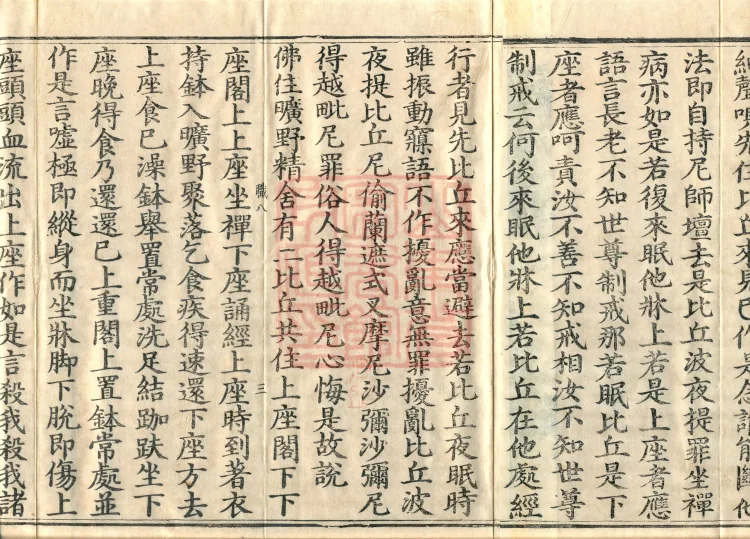 先住比丘來見已作是念
法即自持尼師壇去是比丘波夜提罪坐禪
病亦如是若復來眠他牀上若是上座者應
語言長老不知世尊制戒那若眠比丘是下
座者應呵責汝不善不知戒相汝不知世尊
制戒云何後來眠他牀上若比丘在他處經
行者見先比丘來應當避去若比丘夜眠時
雖振動寱語不作擾亂意無罪擾亂比丘波
夜提比丘尼偷蘭遮式叉摩尼沙彌沙彌尼
得越毗尼罪俗人得越毗尼心悔是故說
佛住曠野精舍有二比丘共住上座閣下下
職八 三
座閣上上座坐禪下座誦經上座時到著衣
持鉢入曠野聚落乞食疾得速還下座方去
上座食已澡鉢舉置常處洗足結跏趺坐下
座晚得食乃還還已上重閣上置鉢常處並
作是言噓極即縱身而坐牀脚下脫即傷上
座頭頭血流出上座作如是言殺我殺我諸